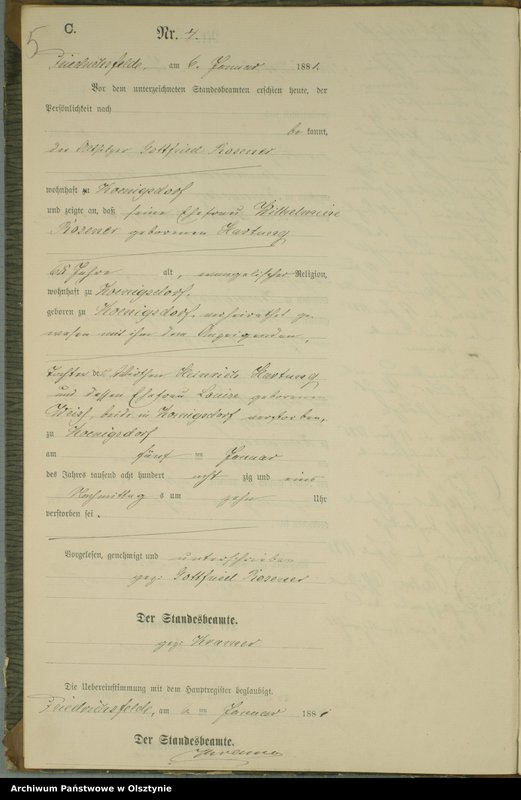 5
C.
Nr. 7.
Friedrichsfelde, am 6. Januar 1881.
Vor dem unterzeichneten Standesbeamten erschien heute, der
Persönlichkeit nach
be kannt,
der Gottfried Rosener
wohnhaft zu Koenigsdorf
und zeigte an, daß seine Ehefrau Wilhelmine
Rosener geborenen Hartung
alt, evangelischer Religion,
wohnhaft zu Koenigsdorf,
geboren zu Koenigsdorf, verheirathet ge-
wesen mit ihm dem Anzeigenden,
Tochter des Wirthen Heinrich Hartung
und dessen Ehefrau Louise geborenen
beide in Koenigsdorf verstorben,
zu Koenigsdorf
am fünf ten Januar
des Jahres tausend acht hundert acht zig und eins
Nachmittag s um zehn Uhr
verstorben sei.
Vorgelesen, genehmigt und unterschrieben
gez: Gottfried Rosener
Der Standesbeamte.
gez: Kramer
Die Uebereinstimmung mit dem Hauptregister beglaubigt.
Friedrichsfelde, am 6 ten Januar 1881
Der Standesbeamte.
Kramer
Archiwum Państwowe w Olsztynie